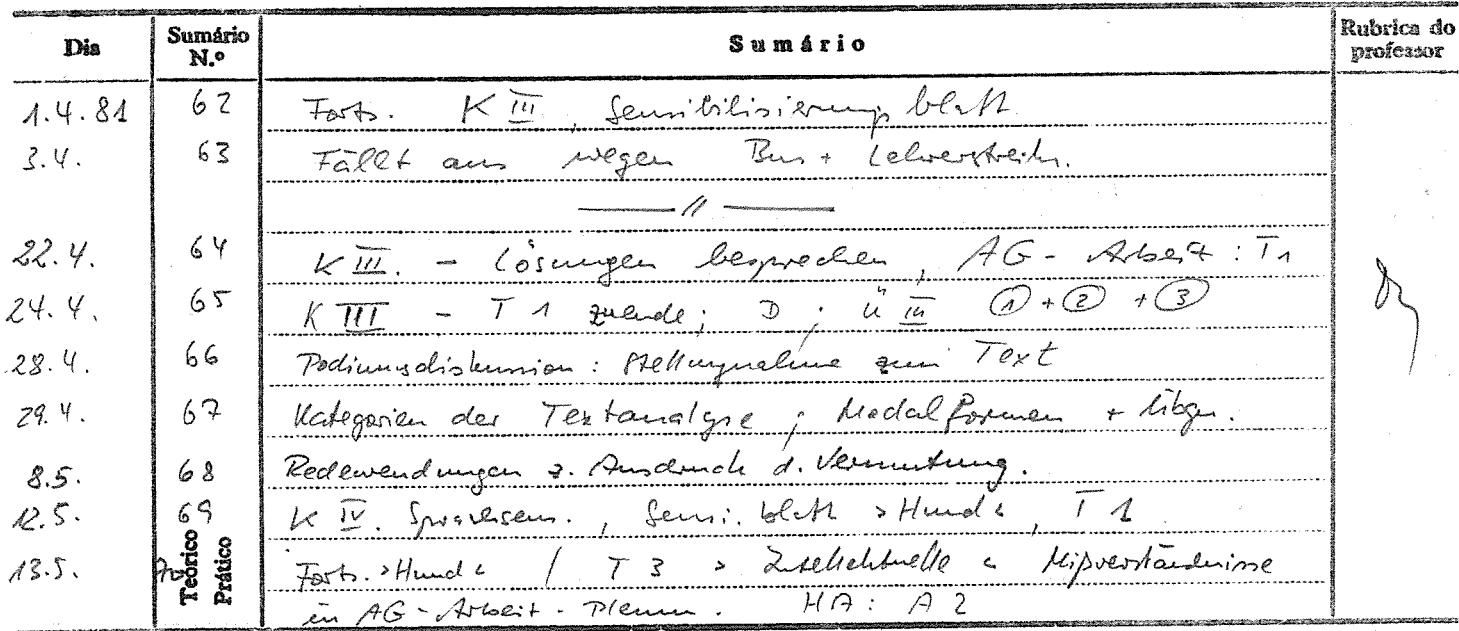 Dia Sumário N.º Sumário Rubrica do professor
1.4.81 62 Forts. K III, Sensibilisierungsblatt
3.4. 63 Fällt aus wegen Bus + Lehrerstreik.
— // —
22.4. 64 K III. - Lösungen besprechen, AG - Arbeit: T1
24.4. 65 K III - T 1 zuende; D ; Ü III ① + ② + ③
28.4. 66 Podiumsdiskussion: Stellungnahme zum Text
29.4. 67 Kategorien der Textanalyse; Modalformen + Übgn.
8.5. 68 Redewendungen z. Ausdruck d. Vermutung.
12.5. 69 K IV. Sprachsens., Sensi. blatt >Hund<, T 1
13.5. 70 Teórico Prático Forts. >Hund< / T 3 >Intellektuelle< Mißverständnisse
in AG-Arbeit - Plenum. HA: A 2